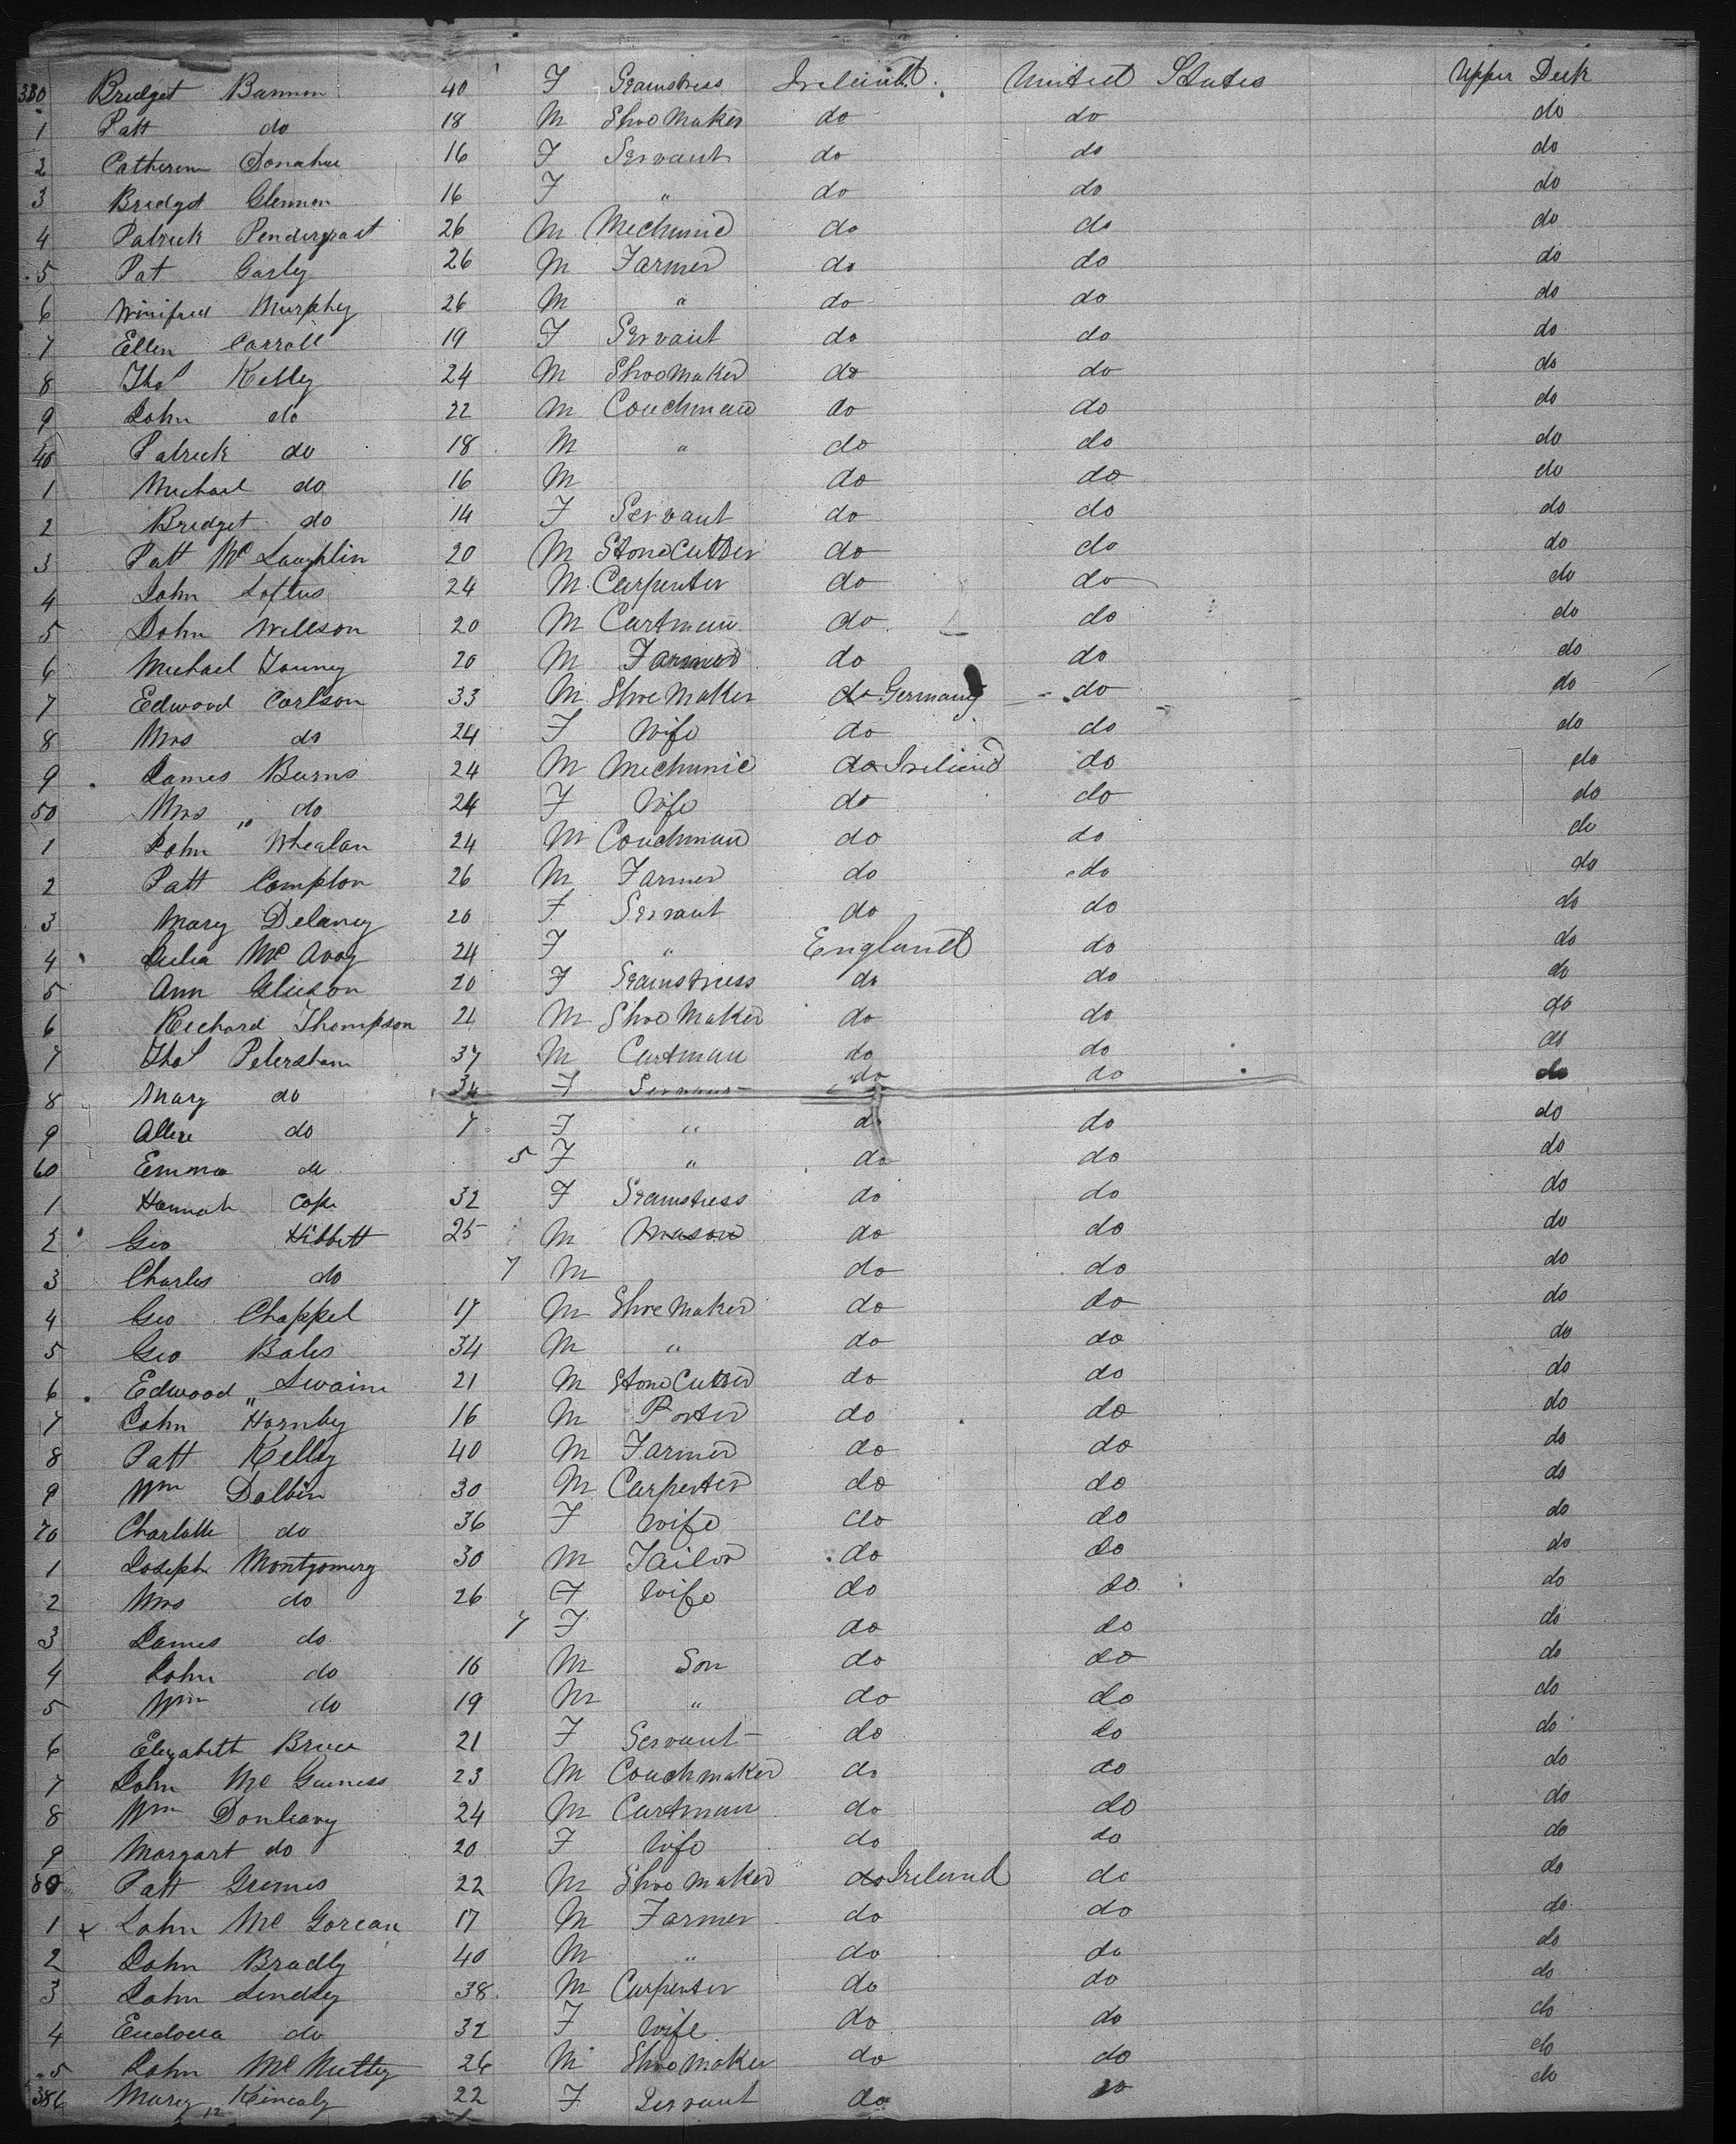 330 Bridget Bannon 40 F Seamstress Ireland United States Upper Deck
1 Patt do 18 M Shoo Maker do do do
2 Catherine Donahue 16 F Servant do do do
3 Bridget Glennon 16 F " do do do
4 Patrick Pendergrast 26 M Mechanic do do do
5 Pat Garly 26 M Farmer do do do
6 Winifred Murphy 26 M " do do do
7 Ellen Carroll 19 F Servant do do do
8 Thos Kelly 24 M Shoomaker do do do
9 John do 22 M Coachman do do do
40 Patrick do 18 M " do do do
1 Michael do 16 M do do do
2 Bridget do 14 F Servant do do do
3 Patt Mc Laughlin 20 M Stone Cutter do do do
4 John Loftus 24 M Carpenter do do do
5 John Willson 20 M Cartman do do do
6 Michael Young 20 M Farmer do do do
7 Edwood Carlson 33 M Shoe Maker do Germany do do
8 Mrs do 24 F Wife do do do
9 James Burns 24 M Mechanic do Ireland do do
50 Mrs " do 24 F Wife do do do
1 John Whealan 24 M Coachman do do do
2 Patt Compton 26 M Farmer do do do
3 Mary Delaney 20 F Servant do do do
4 Julia Mc Avoy 24 F " England do do
5 Ann Gleeson 20 F Seamstress do do do
6 Richard Thompson 21 M Shoo Maker do do do
7 Thos Petersham 37 M Cartman do do do
8 Mary do 34 F Servant do do do
9 Allice do 7 F " do do do
60 Emma do 5 F " do do do
1 Hannah Cope 32 F Seamstress do do do
2 Geo Hibbett 25 M Mason do do do
3 Charles do 7 M do do do
4 Geo Chappel 17 M Shoe Maker do do do
5 Geo Bales 34 M " do do do
6 Edwood " Swaine 21 M Stone Cutter do do do
7 John Hornby 16 M Porter do do do
8 Patt Kelly 40 M Farmer do do do
9 Wm Dalbin 30 M Carpenter do do do
70 Charlotte do 36 F Wife do do do
1 Joseph Montgomery 30 M Tailor do do do
2 Mrs do 26 F Wife do do do
3 James do 7 F do do do
4 John do 16 M Son do do do
5 Wm do 19 M " do do do
6 Elizabeth Bruce 21 F Servant do do do
7 John Mc Guiness 23 M Coachmaker do do do
8 Wm Donleavy 24 M Cartman do do do
9 Margart do 20 F Wife do do do
80 Patt Gremes 22 M Shoo Maker do Ireland do do
1 x John Mc Gorean 17 M Farmer do do do
2 John Bradly 40 M " do do do
3 John Lindsy 38 M Carpenter do do do
4 do 32 F Wife do do do
5 John Mc Nutty 26 M Shoo Maker do do do
386 Mary Kinealy 22 F Servant do do do
12